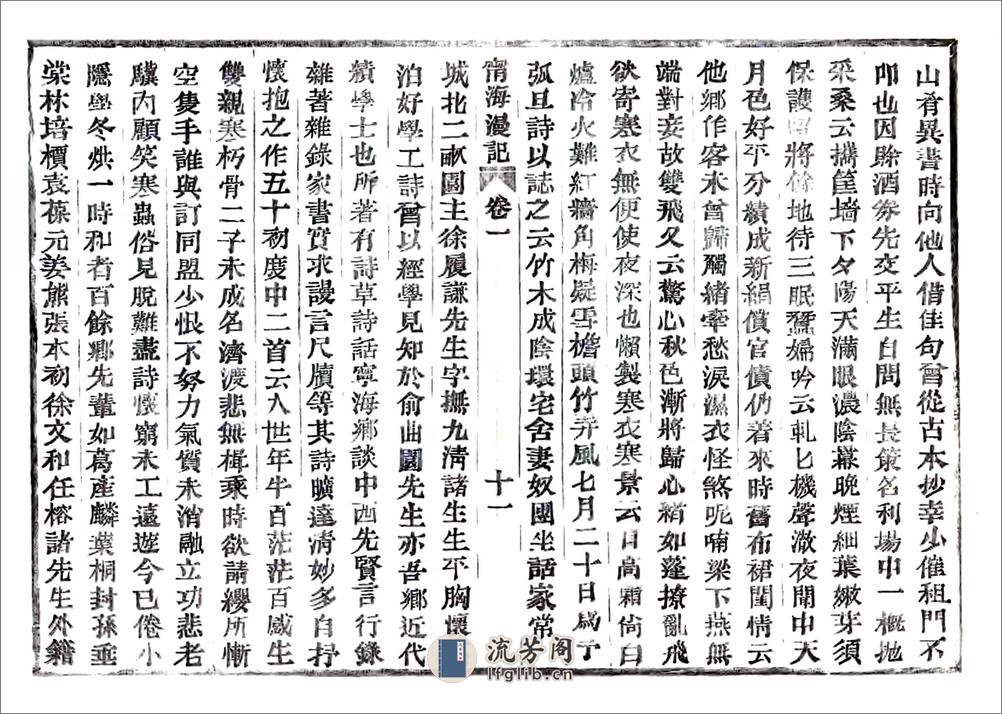 山肴異書時向他人借佳句曾從古本抄幸少催租門不
叩也因賒酒券先交平生自問無長策名利場中一概抛
采桑云攜筐墻下夕陽天滿眼濃陰羃晚煙細葉嫩芽須
保護留將餘地待三眠蠶婦吟云軋匕機聲澈夜聞中天
月色好平分績成新絹償官債仍著來時舊布裙閨情云
他鄉作客未曾歸觸緒牽愁淚濕衣怪煞呢喃梁下燕無
端對妾故雙飛又云驚心秋色漸將歸心緒如蓬撩亂飛
欲寄寒衣無便使夜深也懶製寒衣寒景云日高霜尙白
爐冷火難紅牆角梅疑雪檐頭竹弄風七月二十日爲予
弧旦詩以誌之云竹木成陰環宅舍妻奴團坐話家常
甯海漫記 卷一 十一
城北二畝園主徐履謙先生字撫九淸諸生生平胸懷
泊好學工詩曾以經學見知於俞曲園先生亦吾鄉近代
績學士也所著有詩草詩話寧海鄉談中西先賢言行錄
雜著雜錄家書實求謾言尺牘等其詩曠達淸妙多自抒
懷抱之作五十初度中二首云入世年牛百茫茫百感生
雙親寒朽骨二子未成名濟渡悲無楫乘時欲請纓所慚
空隻手誰與訂同盟少恨不努力氣質未消融立功悲老
驥內顧笑寒蟲俗見脫難盡詩懷窮未工遠遊今已倦小
隱學冬烘一時和者百餘鄉先輩如葛產麟葉桐封孫垂
棠林培櫝袁葆元姜熊張本初徐文和任榕諸先生外籍
流芳阁
lfglib.cn